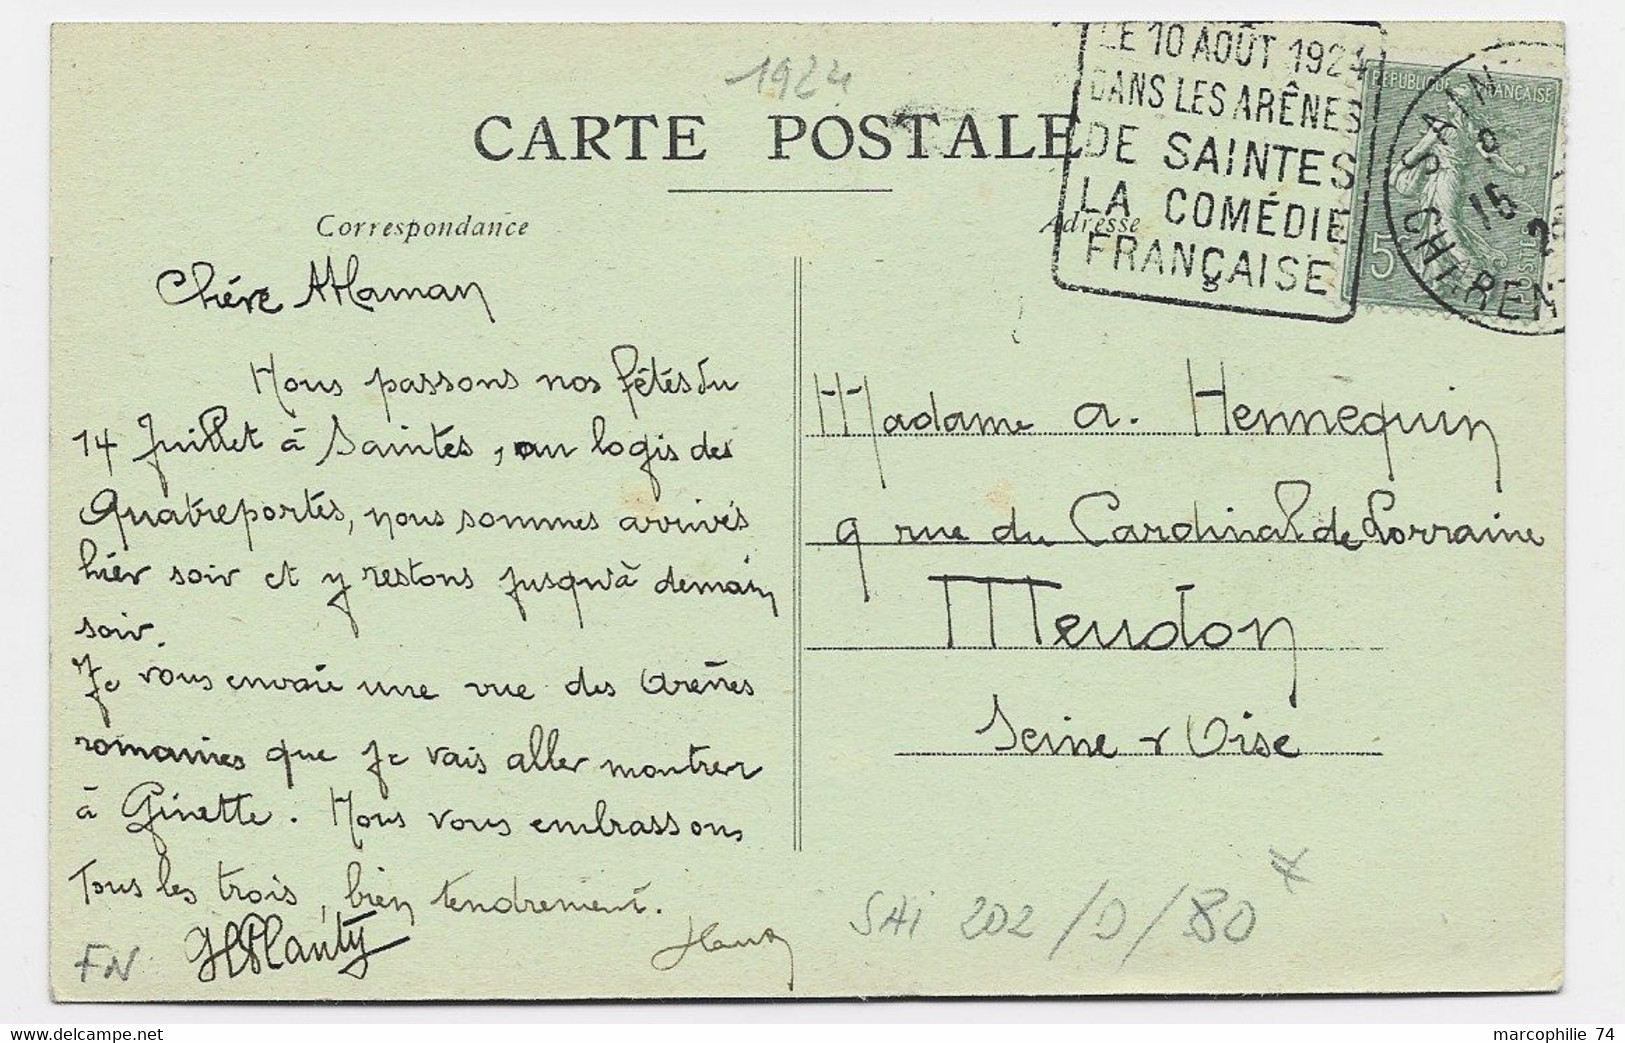 1924
CARTE POSTALE
LE 10 AOÛT 1924
DANS LES ARÊNES
DE SAINTES
LA COMÉDIE
FRANÇAISE
REPUBLIQUE FRANÇAISE
15
Correspondance
Adresse
Chère Maman
Nous passons nos fêtes du
14 Juillet à Saintes, au logis des
Quatreportes, nous sommes arrivés
hier soir et y restons jusqu'à demain
soir.
Je vous envoie une vue des Arènes
romaines que je vais aller montrer
à Ginette. Nous vous embrassons
Tous les trois, bien tendrement.
Madame A. Hennequin
9 rue du Cardinal de Lorraine
Meudon
Seine & Oise
SAI 202 /D/80
FN
marcophilie 74